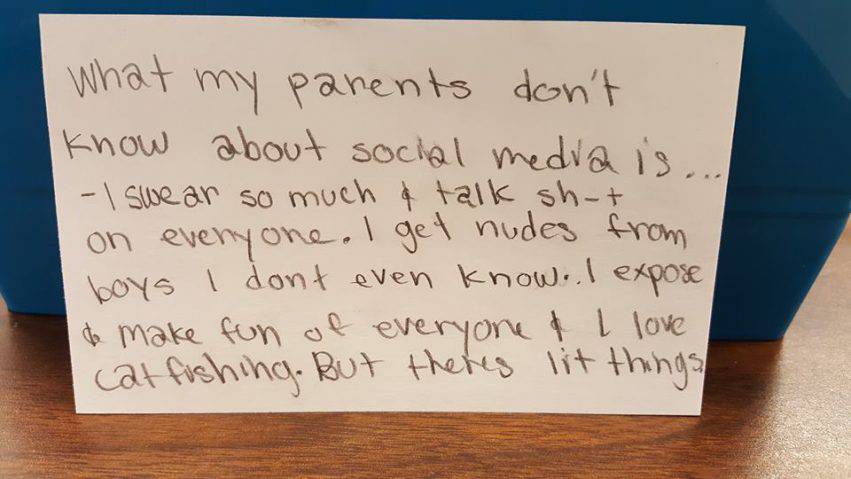 What my parents don't
know about social media is...
- I swear so much & talk sh-t
on everyone. I get nudes from
boys I dont even know.. I expose
& make fun of everyone & I love
catfishing. But theres lit things